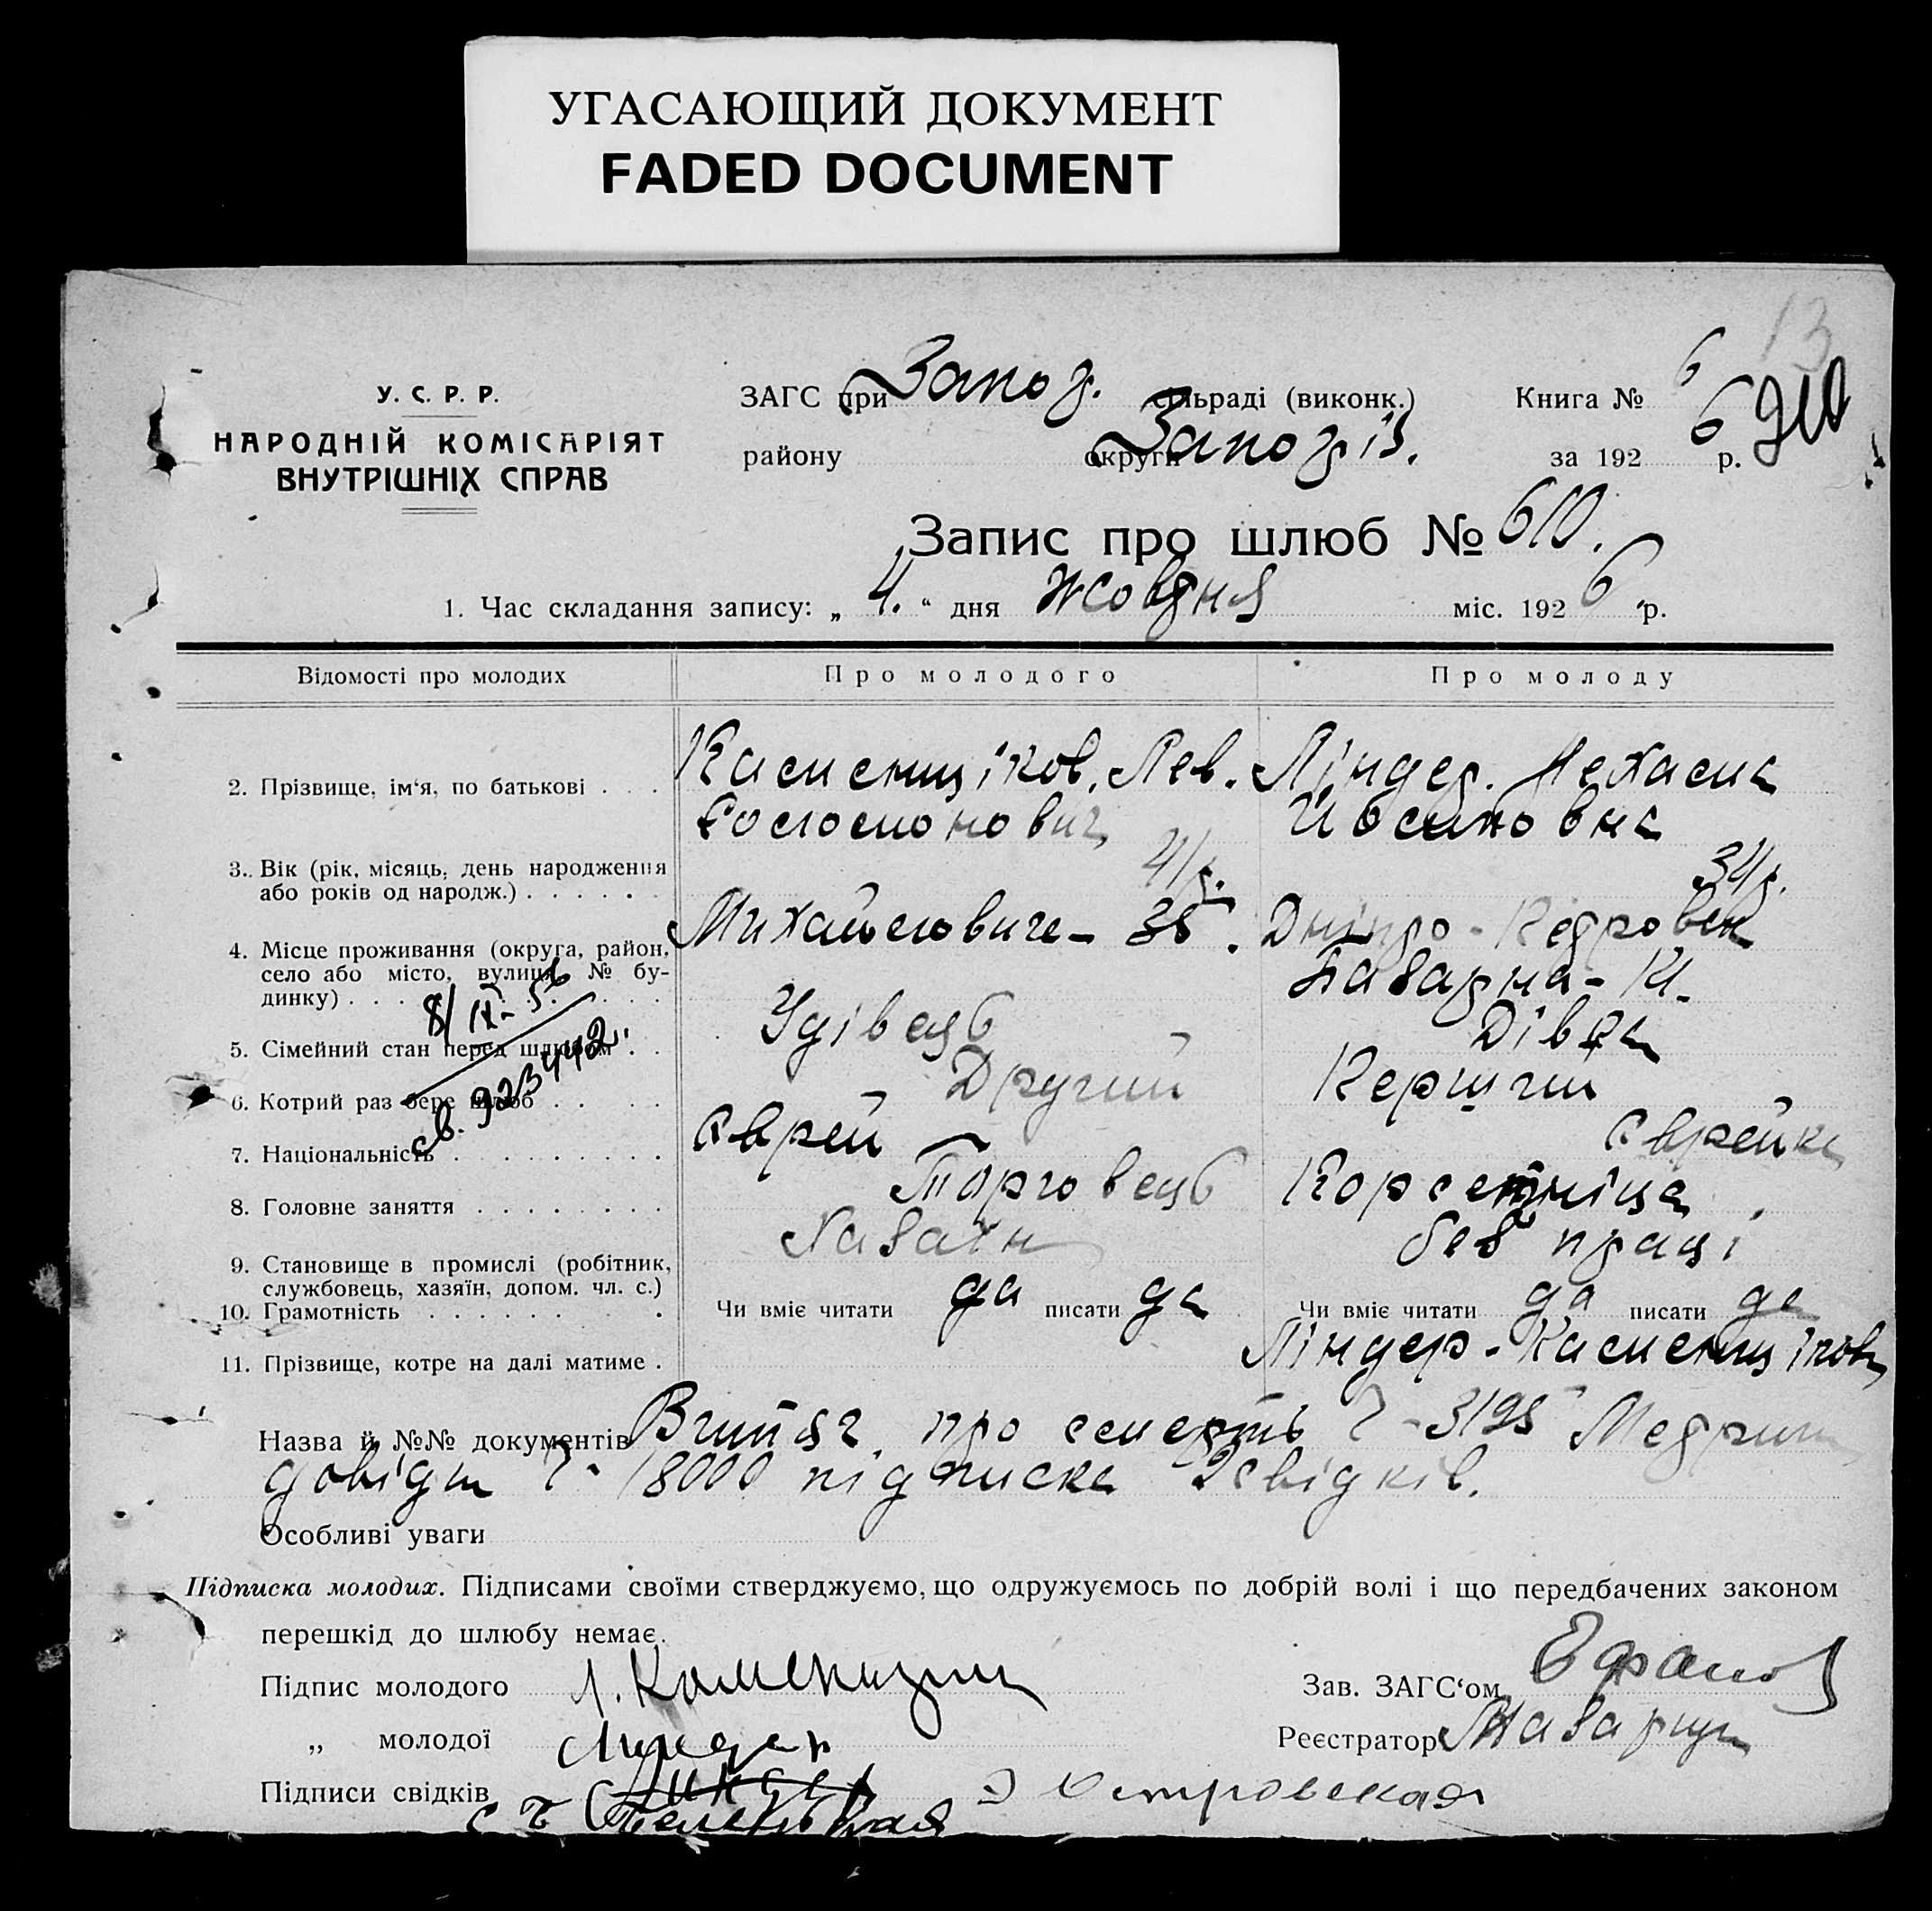 УГАСАЮЩИЙ ДОКУМЕНТ
FADED DOCUMENT
13
У. С. Р. Р.
НАРОДНІЙ КОМІСАРІЯТ
ВНУТРІШНІХ СПРАВ
ЗАГС при Запоз. сільраді (виконк.) Книга № 6
району округи Запозіз. за 1926 р.
Запис про шлюб № 610.
1. Час складання запису: „ 4. “ дня жовтня міс. 1926 р.
Відомості про молодих Про молодого Про молоду
2. Прізвище, ім‘я, по батькові . . . Каменщіков, Лев. Ліндер. Нехама
Соломонович Йосиповна
3. Вік (рік, місяць, день народження 41 р. 34 р.
або років од народж.) . . . . . .
4. Місце проживання (округа, район, Михайловича - 35.
село або місто, вулиця, № бу-
динку) . . . Базарна -
8/IX-56
5. Сімейний стан перед шлюбом . . Удівець Дівка
6. Котрий раз бере шлюб . . . . Другий Перший
7. Національність . . . . . . . . Єврей Єврейка
св. 923442.
8. Головне заняття . . . . . . . . Торговець Корсетніца
9. Становище в промислі (робітник, Хазаїн без праці
службовець, хазяїн, допом. чл. с.)
10. Грамотність . . . . . . . Чи вміє читати да писати да Чи вміє читати да писати да
11. Прізвище, котре на далі матиме . Ліндер - Каменщікова
Назва й №№ документів Витяг про смерть Ч - 3195
довідки Ч - 18000 підписка 2 свідків.
Особливі уваги
Підписка молодих. Підписами своїми стверджуємо, що одружуємось по добрій волі і що передбачених законом
перешкід до шлюбу немає.
Підпис молодого Л. Каменщик Зав. ЗАГС‘ом
„ молодої Линдер Реєстратор
Підписи свідків Линдер Островская